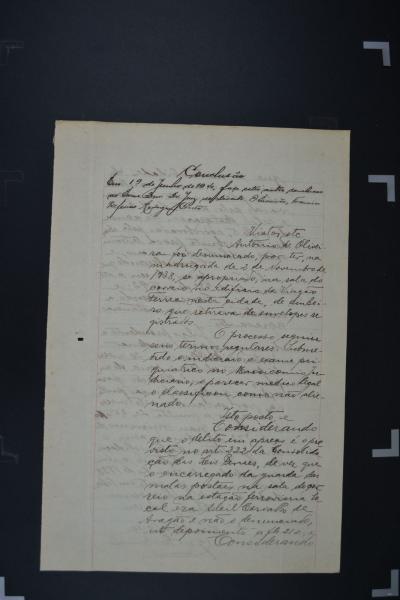 Conclusão
Em 19 de Junho de 19 faço estes autos conclusos
ao Exmo Snr. Dr. Juiz
Vistos, etc
Antonio de Olivei
ra foi denunciado, por ter, na
madrugada de 2 de Novembro de
1938, se apropriado, na sala do
correio no edificio da Viação
terrea nesta cidade, de dinhei
ro que retirava de envelopes re
gistrados.
O processo seguiu
seus termos regulares. Subme
tido o indiciado a exame psi
quiatrico no Manicomio Ju
diciario, o parecer medico legal
o classificou como não alie
nado.
Isto posto e
Considerando
que o delito em apreço é o pre
visto no art. 222 da Consolida
ção das Leis Penaes, de vez que
o encarregado da guarda das
malas postaes na sala do cor
reio na estação ferroviaria lo
cal era Carvalho de
Aragão e não o denunciado,
depoimento a fls
Considerando